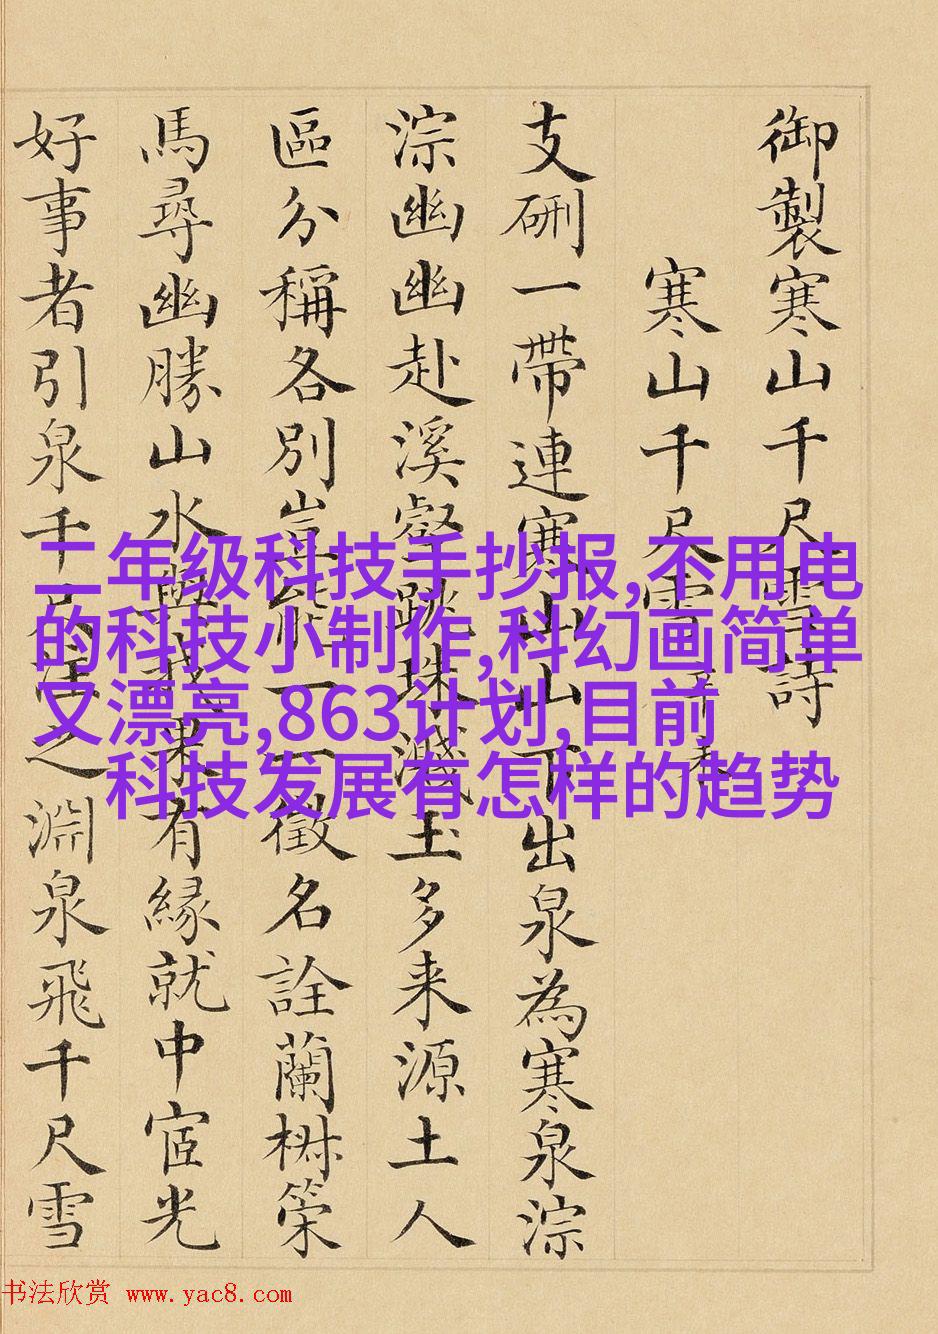 御製寒山千尺雪詩
寒山千尺雪
支硎一帶連寒山山下出泉為寒泉淙
淙幽幽赴溪壑跳珠濺玉多来源土人
區分稱各別豈能一一徵名詮蘭樹策
馬尋幽勝山水與我果有緣就中宦光
好事者引泉千尺注之淵泉飛千尺雪
二年级科技手抄报,不用电
的科技小制作,科幻画简单
又漂亮,863计划,目前
科技发展有怎样的趋势
书法欣赏 www.yac8.com